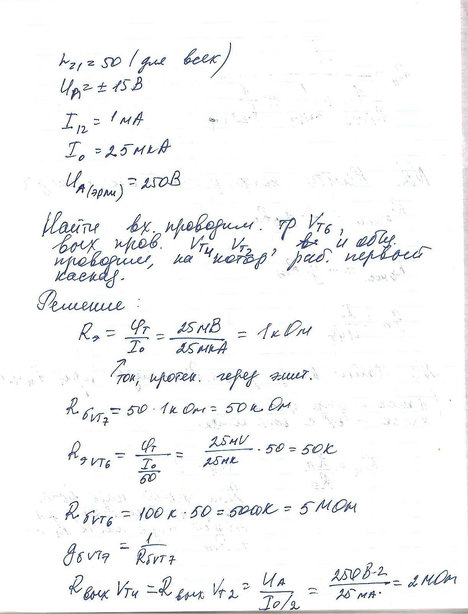 h₂₁ = 50 (для всех)
Uп = ± 15В
I₁₂ = 1 мА
I₀ = 25 мкА
U_A(эрли) = 250В
Найти вх. проводим. тр VT6,
вых пров. VT4, VT2 и общ.
проводим, на котор. раб. первый
каскад.
Решение :
Rэ = φт/I₀ = 25мВ/25мкА = 1кОм
ток, протек. через эмит.
RбVT7 = 50 · 1кОм = 50кОм
RэVT6 = φт/(I₀/50) = 25мV/25мк · 50 = 50К
RбVT6 = 100к · 50 = 5000К = 5 МОм
gбVT7 = 1/RбVT7
Rвых VT4 = Rвых VT2 = U_A/(I₀/2) = 250В·2/25мА. = 2МОм